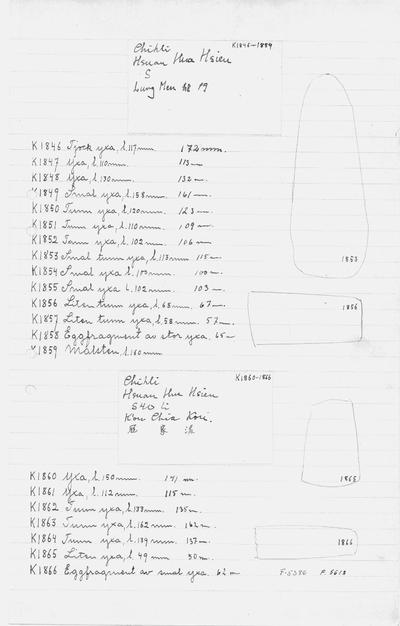 Chihli K1846-1859
Hsuan Hua Hsien
S
Lung Men
K1846 Tjock yxa, l. 117mm 172mm.
K1847 Yxa, l. 110mm. 113—
K1848 Yxa, l. 130mm. 132—
K1849 Smal yxa, l. 158mm. 161—.
K1850 Tunn yxa, l. 120mm. 123—.
K1851 Tunn yxa, l. 110mm. 109—.
K1852 Tunn yxa, l. 102mm. 106—
K1853 Smal tunn yxa, l. 113mm 115—
K1854 Smal yxa l. 100mm. 100—.
K1855 Smal yxa l. 102mm. 103—.
1853
K1856 Liten tunn yxa, l. 65mm. 67—.
1856
K1857 Liten tunn yxa, l. 58mm. 57—.
K1858 Eggfragment av stor yxa. 65—
K1859 Malsten, l. 160mm
Chihli K1860-1866
Hsuan Hua Hsien
S40 li
Kou Chia Kou.
家
K1860 Yxa, l. 150mm. 171 mm.
1865
K1861 Yxa, l. 112mm. 115 m—.
K1862 Tunn yxa, l. 133mm. 135—.
K1863 Tunn yxa, l. 162mm. 162—.
K1864 Tunn yxa, l. 139mm. 137—.
1866
K1865 Liten yxa, l. 49 mm 50 m—.
K1866 Eggfragment av smal yxa. 62— F-5386 P. 5613